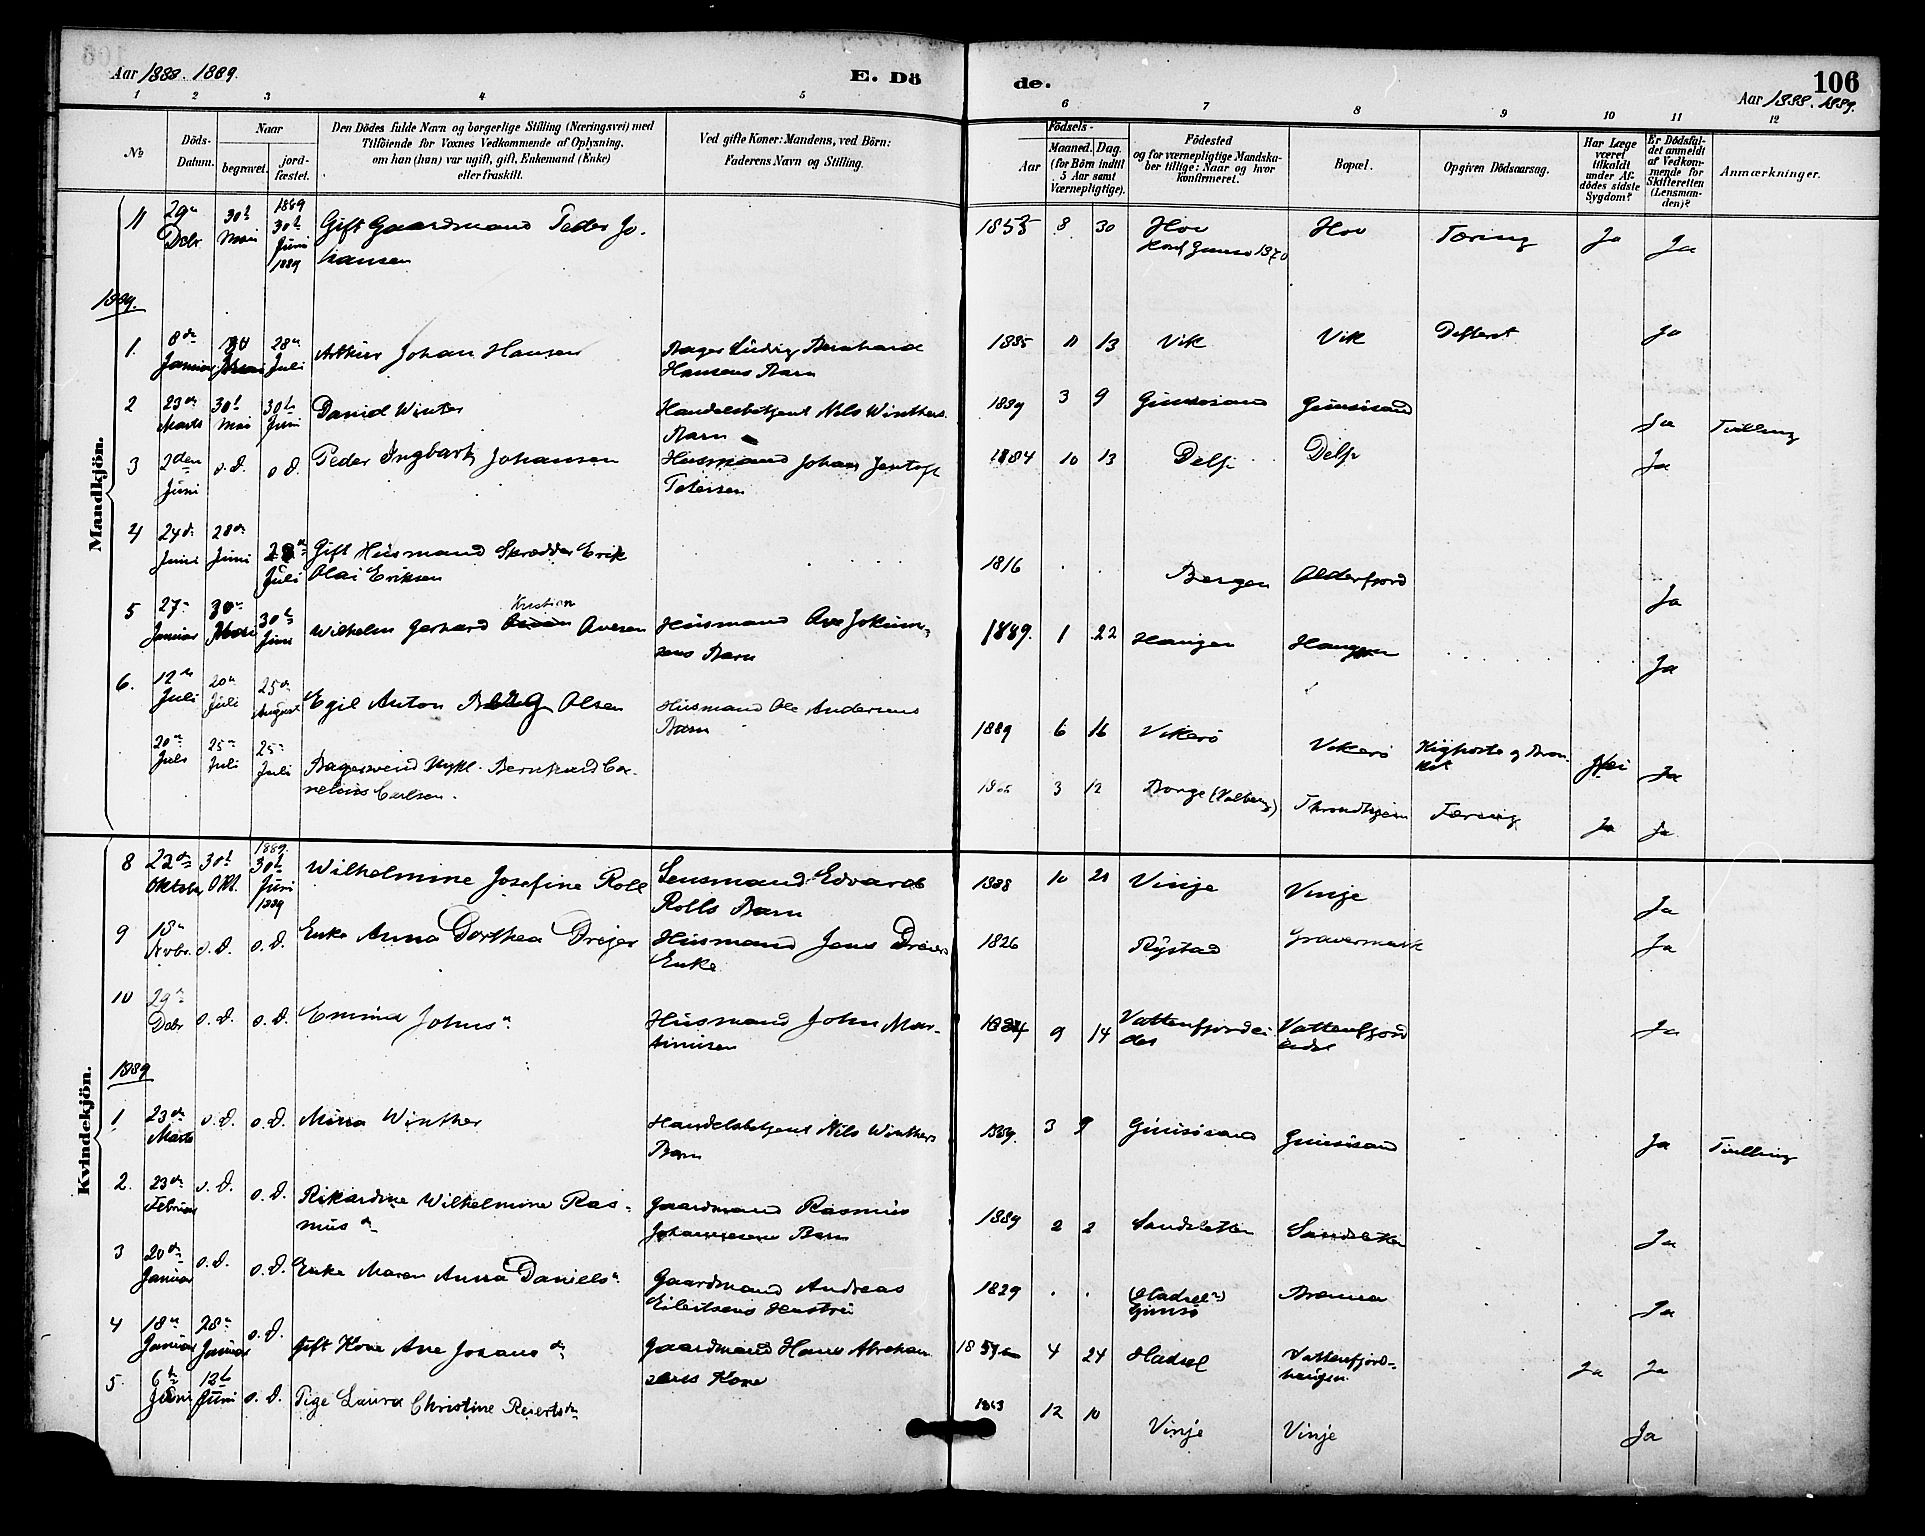 Aar 1888. 1889.
E. Dö
de.
106
Aar 1888. 1889.
1 2 3 4 5 6 7 8 9 10 11 12
№
Döds-Datum.
Naar
begravet.
jord-fæstet.
Den Dödes fulde Navn og borgerlige Stilling (Næringsvei) med
Tilföiende for Voxnes Vedkommende af Oplysning,
om han (hun) var ugift, gift, Enkemand (Enke)
eller fraskilt.
Ved gifte Koner: Mandens, ved Börn:
Faderens Navn og Stilling.
Födsels-
Aar
Maaned. Dag.
(for Börn indtil
5 Aar samt
Værnepligtige).
Födested
og for værnepligtige Mandska-
ber tillige: Naar og hvor
konfirmeret.
Bopæl.
Opgiven Dödsaarsag.
Har Læge
været
tilkaldt
under Af-
dödes sidste
Sygdom?
Er Dödsfal-
det anmeldt
af Vedkom-
mende for
Skifteretten
(Lensman-
den)?
Anmærkninger.
Mandkjön.
11 29 Decbr 30 Mai 1889 30 Juni 1889 Gift Gaardmand Peder Jo-
hansen
8 30 Hov Hov Tæring Ja Ja
1889.
1. 8de Januar 28 Juli Arthur Johan Hansen Bager Ludvig Bernhard
Hansens Barn
1885 11 13 Vik Vik Difterit Ja
2 23de Marts 30te Mai 30te Juni Daniel Winter Handelsbetjent Nils Winthers
Barn
1889 3 9 Gimsösand Gimsösand Ja Tvilling
3 2den Juni o.D. o.D. Peder Ingbart Johansen Husmand Johan Jentoft
Petersen
1884 10 13 Delp Delp Ja
4 24de Juni 28de Juni 28 Juli Gift Husmand Skrædder Erik
Olai Eriksen
1816 Bergen Alderfjord Ja
5 27 Januar 30 30te Juni Wilhelm Gerhard Kristian Avesen Husmand Ave Jokum-
sens Barn
1889. 1 22 Haugen Haugen Ja
6. 12te Juli 20 Juli 25de August Egil Anton Berg Olsen Husmand Ole Andersens
Barn
1889 6 16 Vikerö Vikerö Kighoste og Bron-
kit Nei Ja
20 Juli 25 Juli 25 Juli Bagersvend Ungkl. Bernhard Cor-
nelius Carlsen.
3 12 Borge (Valberg) Throndhjem Tæring Ja Ja
Kvindekjön.
8 22de Oktober 30te Okt. 1889. 30te Juni 1889 Wilhelmine Josefine Roll Lensmand Edvard
Rolls Barn
1888 10 Vinje Vinje Ja
9 13 Novbr. o.D. o.D. Enke Anna Dorthea Dreyer Husmand Jens Dreiers
Enke
1826 Rystad Gravermark Ja
10 29 Decbr o.D. o.D. Emma Johns Husmand John Mar-
tinusen
9 14 Vattenfjordei-
det Vattenfjord
eidet Ja
1889
1 23de Marts o.D. o.D. Mina Winther Handelsbetjent Nils Winthers
Barn
1889. 3 9 Gimsösand Gimsösand Ja Tvilling
2. 23de Februar o.D. o.D. Rikardine Wilhelmine Ras-
mus
Gaardmand Rasmus
Johannesens Barn
1889 2 2 Sandsletten Sandsletten Ja
3 20de Januar o.D. o.D. Enke Maren Anna Daniels Gaardmand Andreas
Eilertsens Hustru
1829 (Hadsel) Gimsö Brenna Ja
4 18 Januar 28 Januar o.D. Gift Kone Ane Johans Gaardmand Hans Abraham
sens Kone
4 24 Hadsel Vattenfjord-
haugen Ja Ja
5 6te Juni 12te Juni o.D. Pige Laura Christine Reierts
1863 12 10 Vinje Vinje Ja